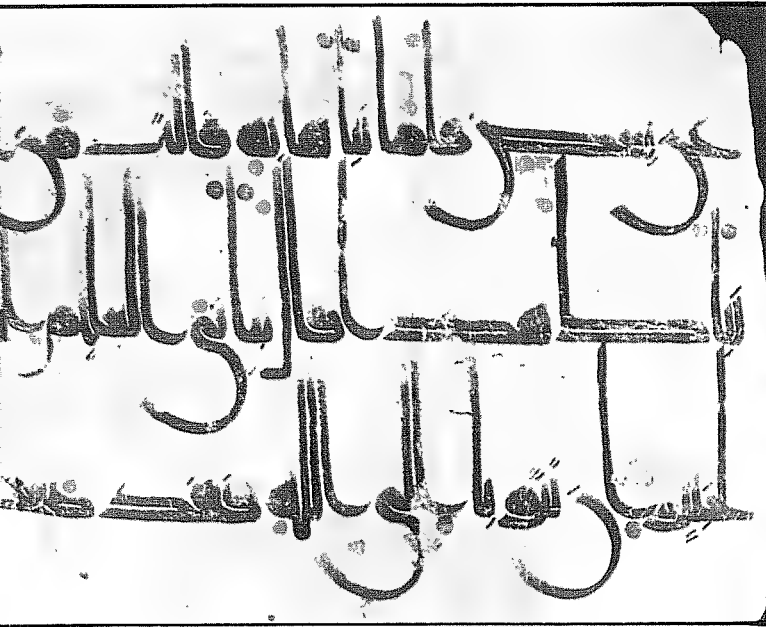 عن بعض فلما نباها به قالت من
انباك هذا قال نباني العليم ا
لخبير ان تتوبا الى الله فقد صغت